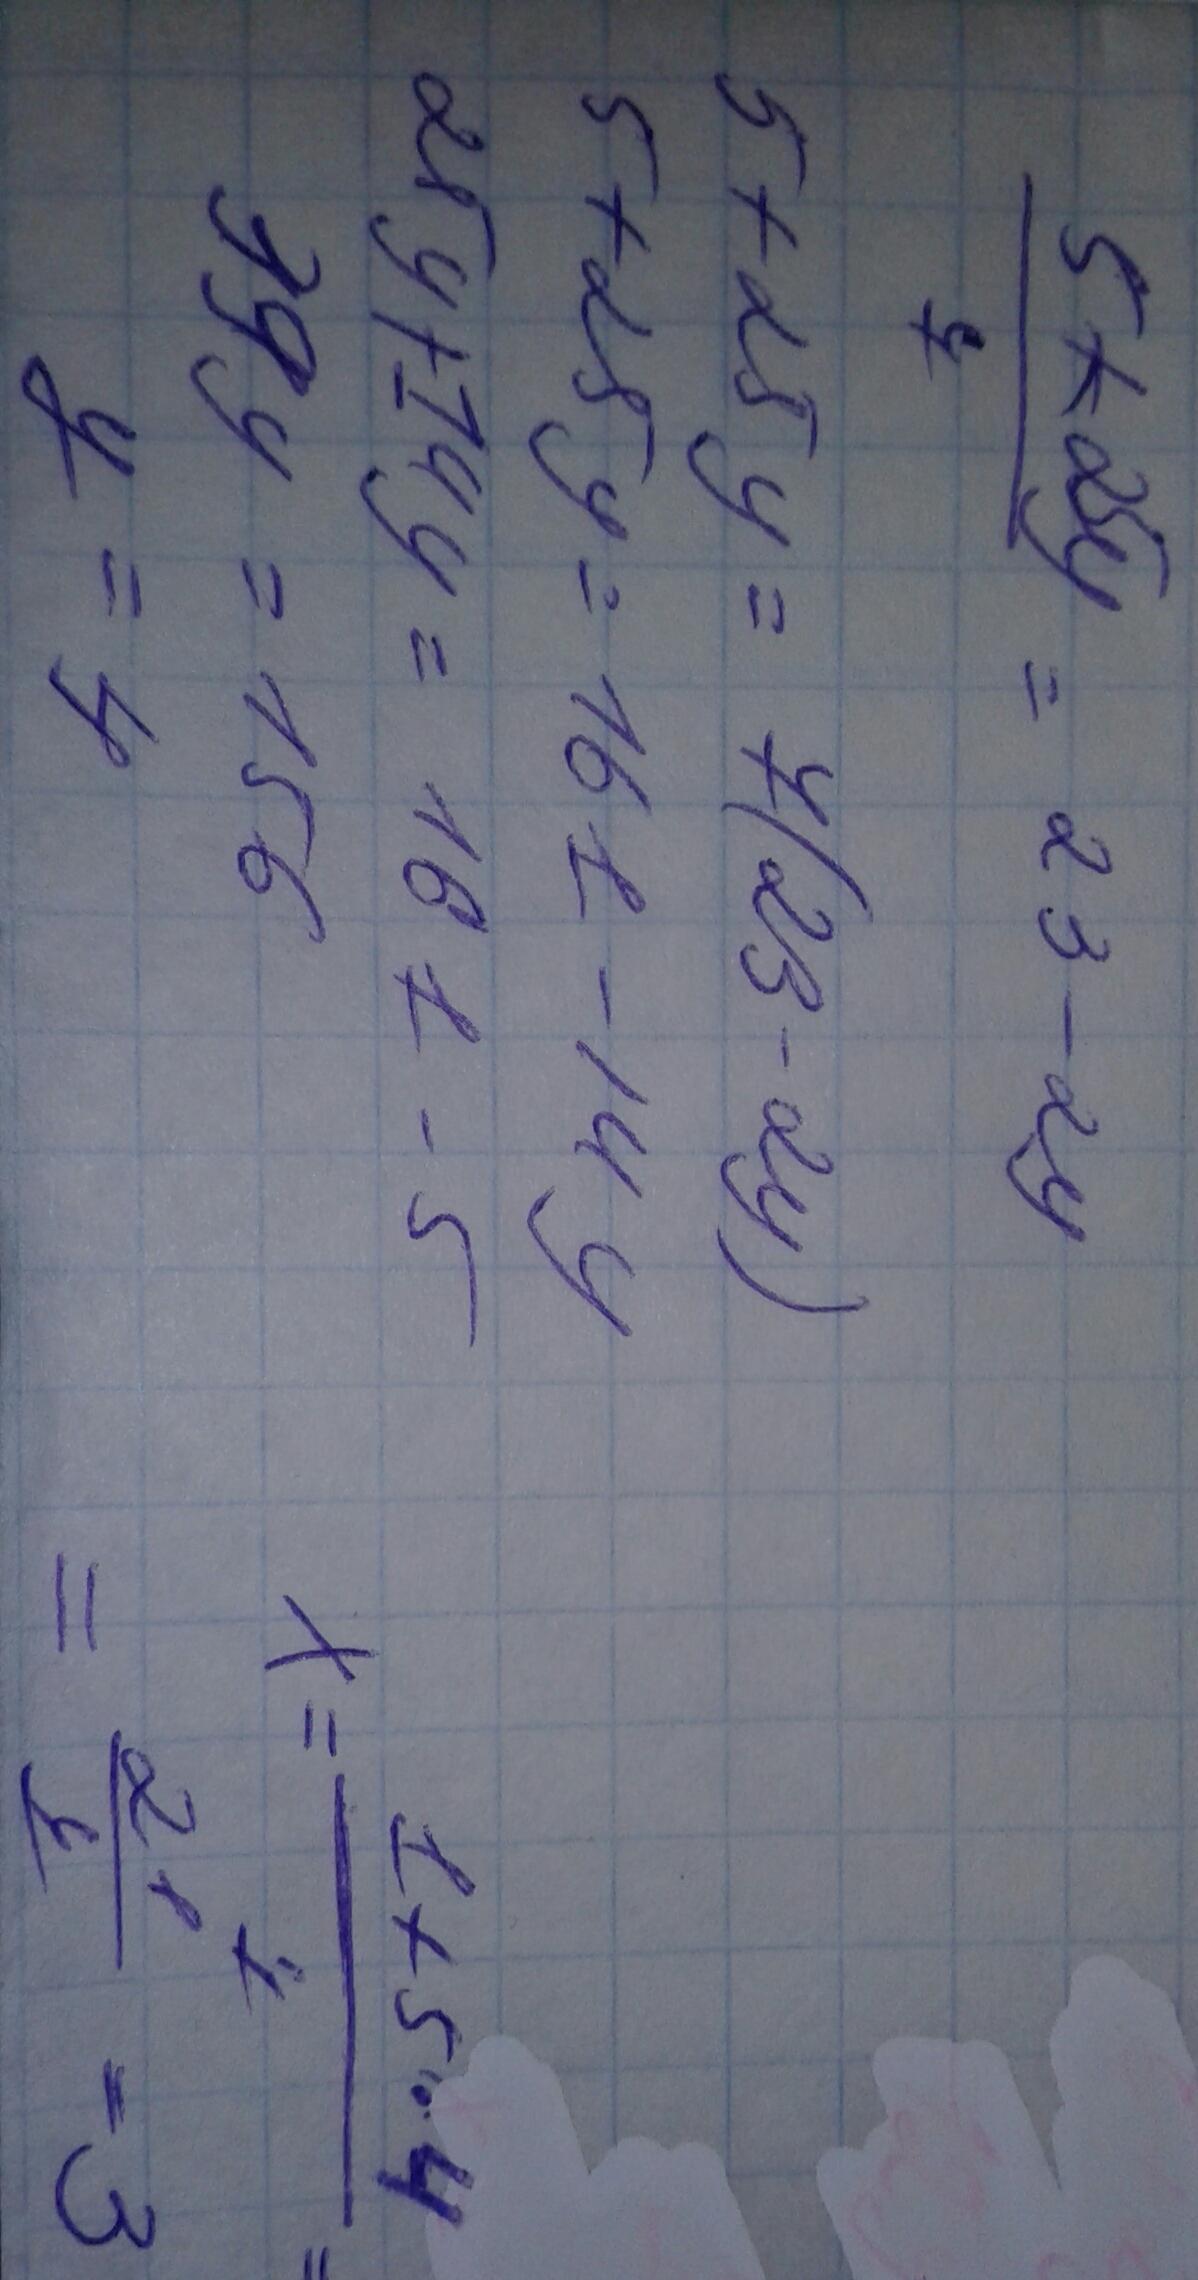 5+25y
7
= 23-2y
5+25y = 7(23-2y)
5+25y = 161-14y
25y+14y = 161-5
39y = 156
y = 4
x = 1+5·4
7
=
= 21
7
= 3